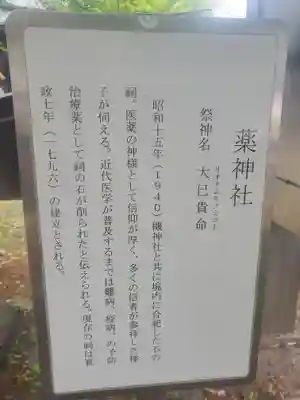 薬神社
祭神名 大巳貴命
昭和十五年(1940)磯神社と共に境内に合祀した石の
祠。医薬の神様として信仰が厚く、多くの信者が参拝した様
子が伺える。近代医学が普及するまでは難病、疫病、の予防
治療薬として祠の石が削られたと伝えられる。現存の祠は寛
政七年(一七九六)の建立とされる。